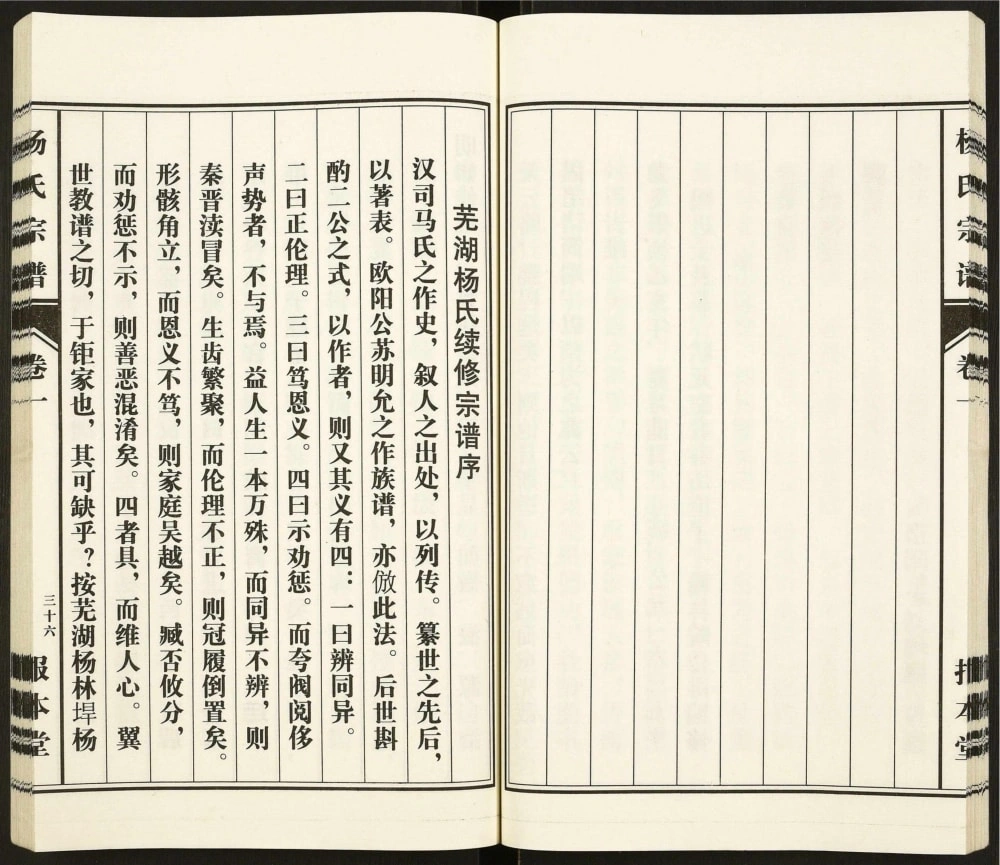 芜湖杨氏续修宗谱序
汉司马氏之作史，叙人之出处，以列传。纂世之先后，
以著表。欧阳公苏明允之作族谱，亦倣此法。后世斟
酌二公之式，以作者，则又其义有四：一曰辨同异。
二曰正伦理。三曰笃恩义。四曰示劝惩。而夸阀阅侈
声势者，不与焉。益人生一本万殊，而同异不辨，则
秦晋渎冒矣。生齿繁聚，而伦理不正，则冠履倒置矣。
形骸角立，而恩义不笃，则家庭吴越矣。臧否攸分，
而劝惩不示，则善恶混淆矣。四者具，而维人心。翼
世教谱之切，于钜家也，其可缺乎？按芜湖杨林垾杨
杨氏宗谱
卷一
三十六
报本堂
杨氏宗谱
卷一
报本堂